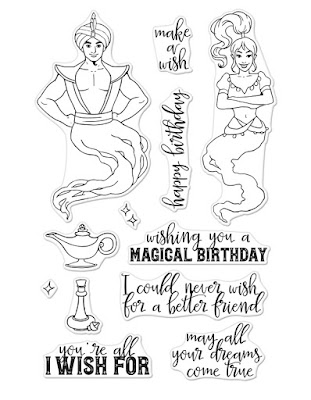 make
a
wish
happy birthday
wishing you a
MAGICAL BIRTHDAY
I could never wish
for a better friend
you're all
I WISH FOR
may all
your dreams
come true